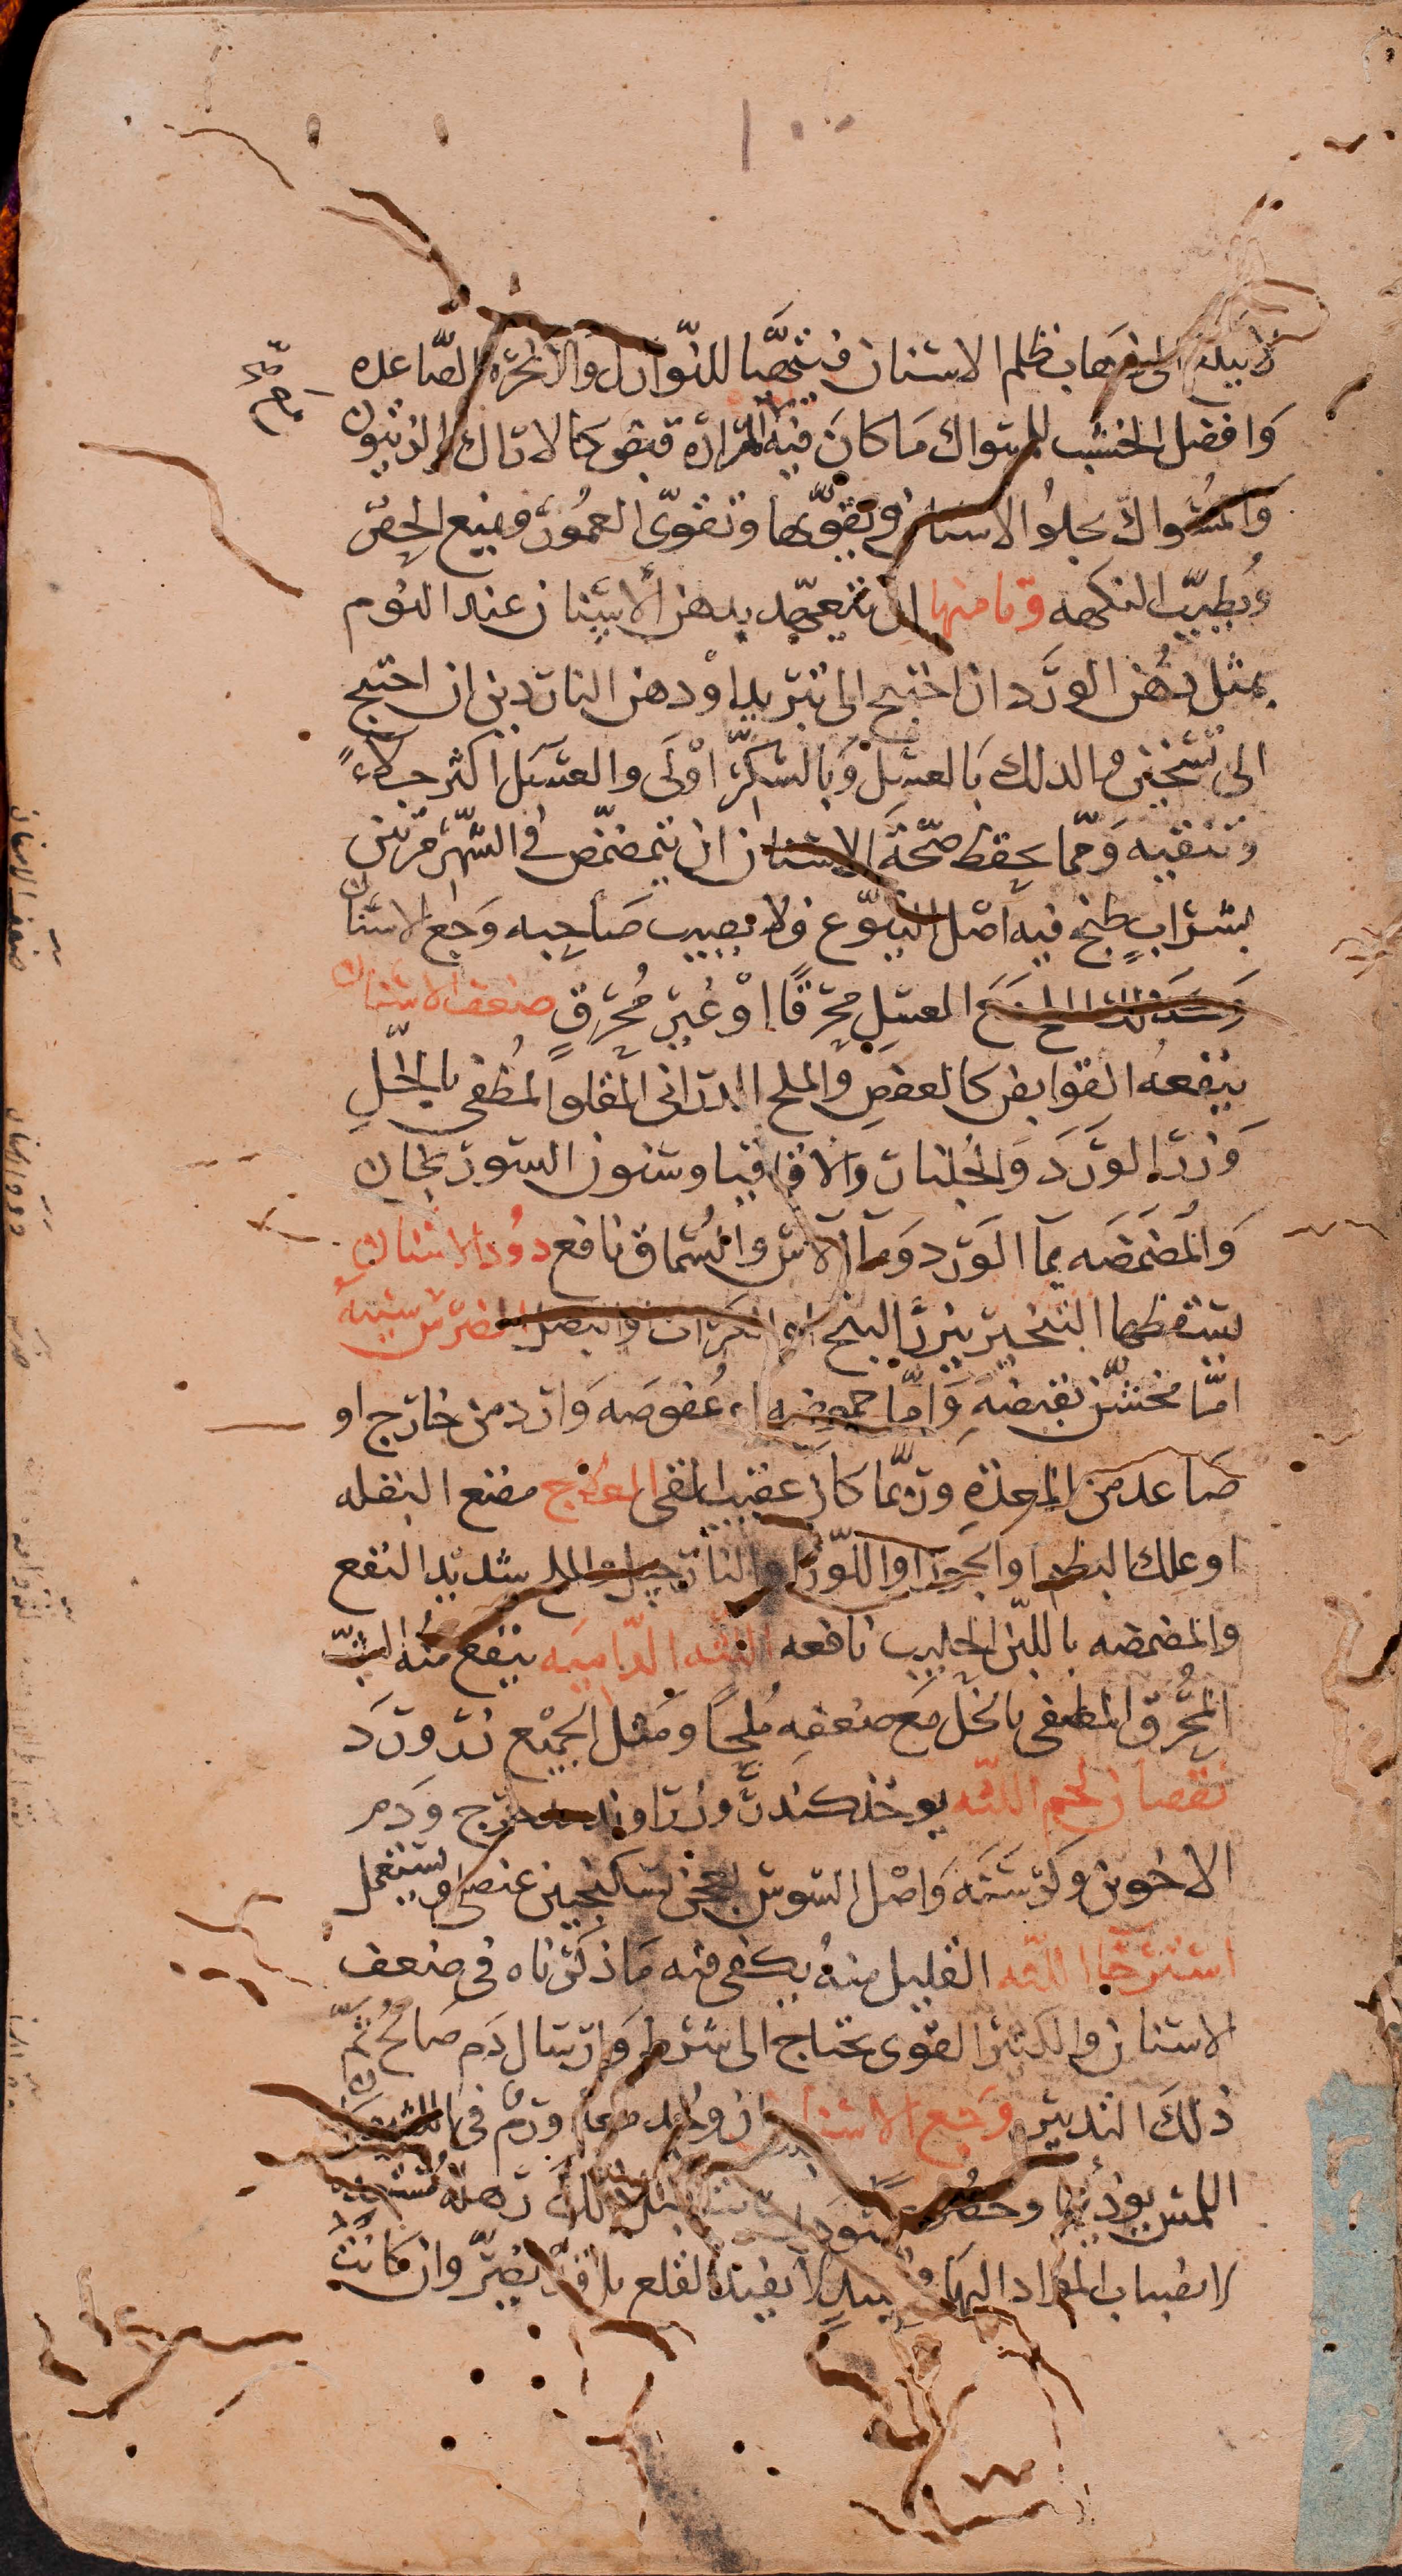 لا يبلغ الى اذهاب ظلم الاسنان فيتهيّا للنّوازل والابخره الصّاعده
وافضل الخشب للسواك ما كان فيه مراره قبض كالاراك والزيتون
والسّواك يجلوا الاسنان ويقوّيها وتقوّى العمُور ويمنع الحفر
ويُطيّب النكهه ومما منها ان يتعهّد بدهن الاسنان عند النوم
بمثل دهن الورد ان احتيج الى تبريد او دهن الناردين ان احتيج
الى تسخين والدلك بالعسل وبالسّكّر اولى والعسل اكثر جلاءً
وتنقيه وممّا يحفظ صحّة الاسنان ان يتمضمض في الشّهر مرتين
بشراب طبخ فيه اصل اليتوّع فلا يصيب صاحبه وجع الاسنان
وكذلك الملح مع العسل محرقًا او غير مُحرقٍ ضعف الاسنان
ينفعه القوابض كالعفص والملح الدرانى المقلو المُطفى بالخل
وزر الورد والجلنار والاقاقيا وسنون السورنجان
والمضمضه بمآ الورد ومآ الآس والسُماق نافع دُود الاسنان
يسقطها التبخير ببزر البنج او الكراث والبصل الضرس سببه
امّا مخشّن بقبضه وامّا حموضه او عُفوصه وارد من خارج او
صاعد من المعدة وربّما كان عقيب القى العلاج مضغ البقله
او علك البطم او الجوز او اللّوز او النارجيل والملح شديد النفع
والمضمضه باللبن الحليب نافعه اللثه الدّاميه ينفع منُه الشبّ
المُحرق المطفى بالخل مع ضعفه مُلحًا ومثل الجميع زر ورد
نقصان لحم اللثه يوخذ كندر وزراوند مدحرج ودم
الاخوين وكرسنه واصل السوسن يعجن بسكنجبين عنصلى ويستعمل
استرخا اللثه القليل منهُ يكفى فيه ما ذكرناه فى ضعف
الاسنان والكثير القوى يحتاج الى شرط وارسال دم صالح ثمّ
ذلك التدبير وجع الاسنان ان وجد معه ورم فى اللثه
اللمس يوذيها
لانصباب المواد اليها لا يفيد القلع بل قد يضرّ وان كانت